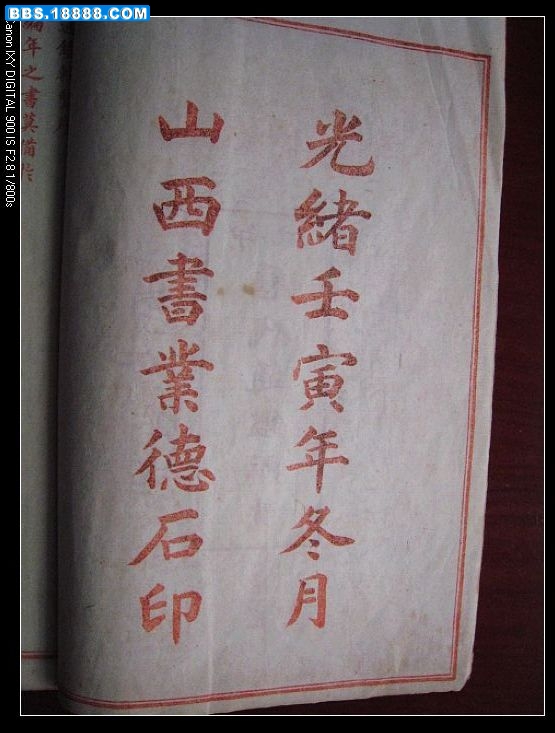 BBS.18888.COM
Canon IXY DIGITAL 900 IS F2.8 1/800s
光緒壬寅年冬月
山西書業德石印
編年之書莫備於